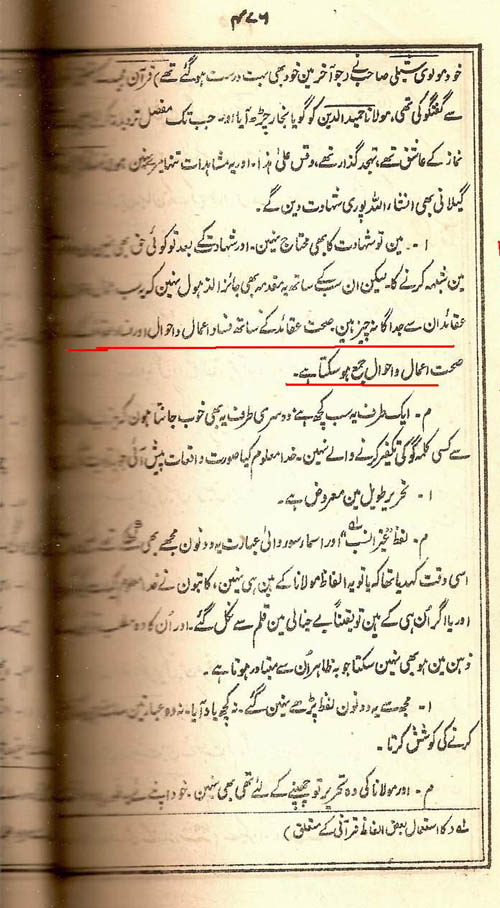 ۴۷۶
خود مولوی شبلی صاحب نے (جو آخر مین خود بھی بہت درست ہو گئے تھے) قرآن
سے گفتگو کی تھی، مولانا حمید الدین کو گویا بخار چڑھ آیا اور جب تک مفصل تردید
نماز کے عاشق تھے، تہجد گذار تھے، وقس علیٰ ہذا، اور یہ مشاہدات تنہا میرے نہین
گیلانی بھی انشاء اللہ پوری شہادت دین گے۔
ا - مین تو شہادت کا بھی محتاج نہین۔ اور شہادت کے بعد تو کوئی حق بھی نہین
مین شبہہ کرنے کا۔ لیکن ان سب کے ساتھ یہ مقدمہ بھی جائز الذہول نہین کہ یہ سب
عقائد ان سے جداگانہ چیز ہین۔ صحت عقائد کے ساتھ فساد اعمال و احوال اور فساد
صحت اعمال و احوال جمع ہو سکتا ہے۔
م - ایک طرف یہ سب کچھ ہے، دوسری طرف یہ بھی خوب جانتا ہون کہ
سے کسی کلمہ گو کی تکفیر کرنے والے نہین۔ خدا معلوم کیا صورت واقعات پیش آئی
ا - تحریر طویل مین معروض ہے۔
م - لفظ اور اسمار سور والی عبارت یہ دونون مجھے بھی
اسی وقت کہدیا تھا کہ یا تو یہ الفاظ مولانا کے ہین ہی نہین، کاتبون نے
اور یا اگر اُن ہی کے ہین تو یقیناً بے خیالی مین قلم سے نکل گئے۔ اور اُن کا وہ مطلب
ذہن مین ہو بھی نہین سکتا جو بہ ظاہر اُن سے متبادر ہوتا ہے۔
ا - مجھ سے یہ دونون لفظ پڑھے نہین گئے۔ نہ کچھ یاد آیا۔ نہ وہ عبارتین
کرنے کی کوشش کرتا۔
م - اور مولانا کی وہ تحریر تو چھپنے کے لئے تھی بھی نہین۔ خود اپنے
لے د کا استعمال بعض الفاظ قرآنی کے متعلق)